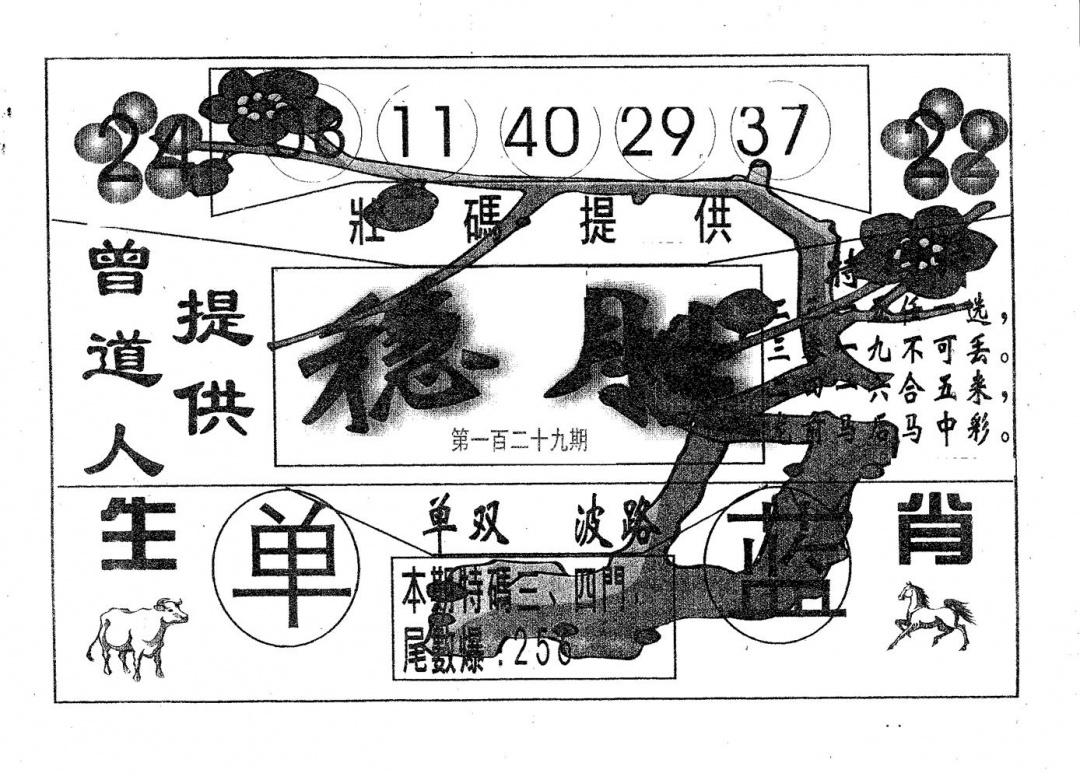 24 03 11 40 29 37 22
壯碼提供
曾道人
提供
稳胜
第一百二十九期
特
选，
三 一九不可丢。
六合五来，
马后马中彩。
生
单
单双 波路
蓝
肖
本期特碼三、四門，
尾數爆：256